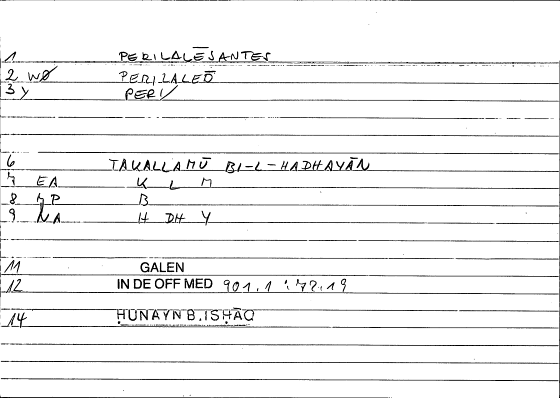 1 PERILALĒSANTES
2 WØ PERILALEŌ
3 Y PERI/
6 TAKALLAMŪ BI-L-HADHAYĀN
7 EA K L M
8 B
9 NA H DH Y
11 GALEN
12 IN DE OFF MED 901.1 : 72.19
14 ḤUNAYN B. ISḤĀQ